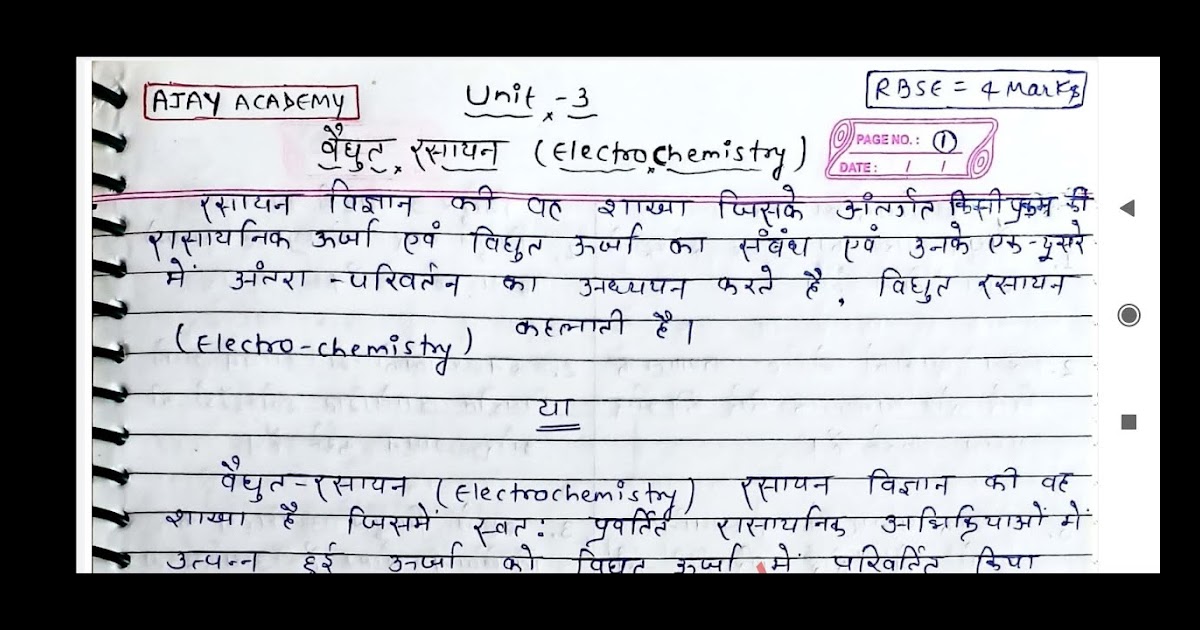 AJAY ACADEMY
Unit-3
RBSE = 4 Marks
वैधुत रसायन (Electrochemistry)
PAGE NO.: 1
DATE: / /
रसायन विज्ञान की वह शाखा जिसके अंतर्गत किसी प्रक्रम की
रासायनिक ऊर्जा एवं विधुत ऊर्जा का संबंध एवं उनके एक-दूसरे
में अंतरा-परिवर्तन का अध्ययन करते है, विधुत रसायन
(Electro-chemistry) कहलाती है।
या
वैधुत-रसायन (Electrochemistry) रसायन विज्ञान की वह
शाखा है जिसमें स्वत: प्रवर्तित रासायनिक अभिक्रियाओं में
उत्पन्न हुई ऊर्जा को विधुत ऊर्जा में परिवर्तित किया